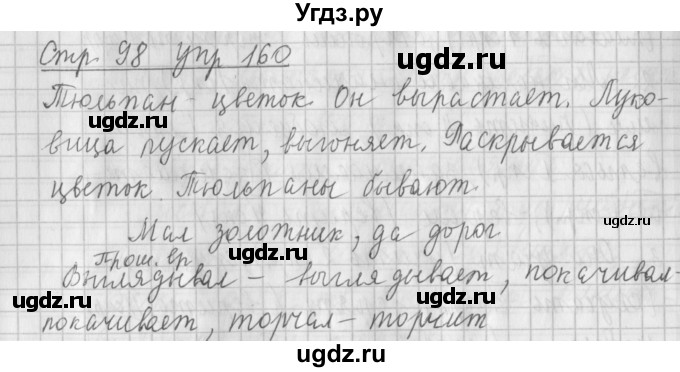 Угдз.ру
Стр. 98 упр 160
ugdz.ru
Тюльпан - цветок. Он вырастает. Луко-
ugdz.ru
вица пускает, выгоняет. Раскрывается
ugdz.ru
цветок. Тюльпаны бывают.
ugdz.ru
Мал золотник, да дорог
ugdz.ru
Прош. вр.
Выглядывал - выглядывает, покачивал-
ugdz.ru
ugdz.ru
покачивает, торчал - торчит
ugdz.ru